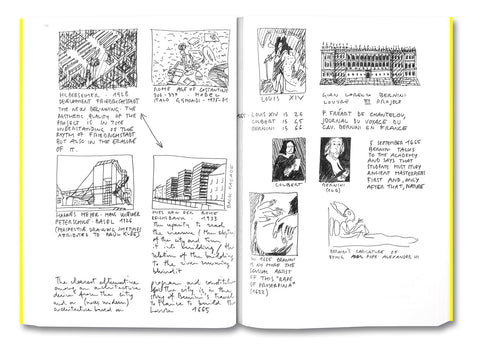 HILBERSEIMER 1928
DEVELOPMENT FRIEDRICHSTADT
THE NEW BEGINNING. THE
AESTHETIC QUALITY OF THE
PROJECT IS IN THE
UNDERSTANDING OF THE
RHYTHM OF FRIEDRICHSTADT
BUT ALSO IN THE ERASURE OF
IT.
ROME AGE OF CONSTANTINE
MODEL
ITALO GISMONDI - 1935-
HANNES MEYER - HANS WITTWER
PETERSSCHULE - BASEL 1926
(PERSPECTIVE DRAWING SOMETIMES
ATTRIBUTED TO PAUL KLEE)
MIES VAN DER ROHE
REICHSBANK - 1933
The capacity to read
the
of the city and turn
it into building / the
relation of the building
to the river running
behind it
BACK FACADE
The closest alternative
among an architecture
derived from the city
and a (new modern)
architecture based on
program and
for the city is in the
story of Bernini's travel
to France to build the
Louvre 1665
LOUIS XIV
LOUIS XIV IS 26
COLBERT IS 45
BERNINI IS 66
GIAN LORENZO BERNINI
LOUVRE III PROJECT
P. FRÉART DE CHANTELOU,
JOURNAL DU VOYAGE DU
CAV. BERNINI EN FRANCE
COLBERT
BERNINI
5 SEPTEMBER 1665
BERNINI TALKS
TO THE ACADEMY
AND SAYS THAT
STUDENTS MUST STUDY
ANCIENT MASTERPIECES
FIRST AND, ONLY
AFTER THAT, NATURE
IN 1665 BERNINI
IS NO MORE THE
SENSUAL ARTIST
OF THIS "RAPE OF
PROSERPINA"
(1622)
BERNINI'S CARICATURE OF
POPE ALEXANDER VII